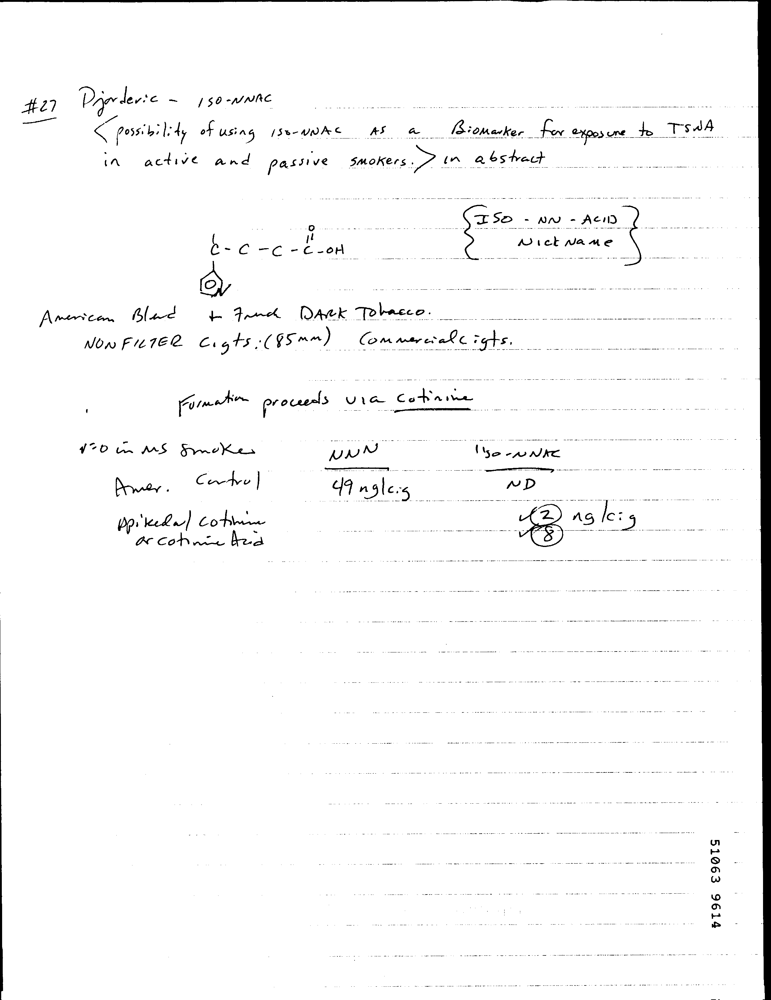 #27 Djordevic - ISO-NNAC
< possibility of using ISO-NNAC AS a Biomarker for exposure to TSNA
in active and passive smokers. > in abstract
{ISO - NN - ACID}
Nickname
O
C - C - C - C - OH
N
American Blend + French DARK Tobacco.
NONFILTER Cigts. (85mm) Commercial cigts.
Formation proceeds via cotinine
in MS smoke
NNN ISO-NNAC
Amer. Control 49 ng/cig ND
Spiked w/ cotinine 2 ng/cig
or cotinine Acid 8
51063 9614